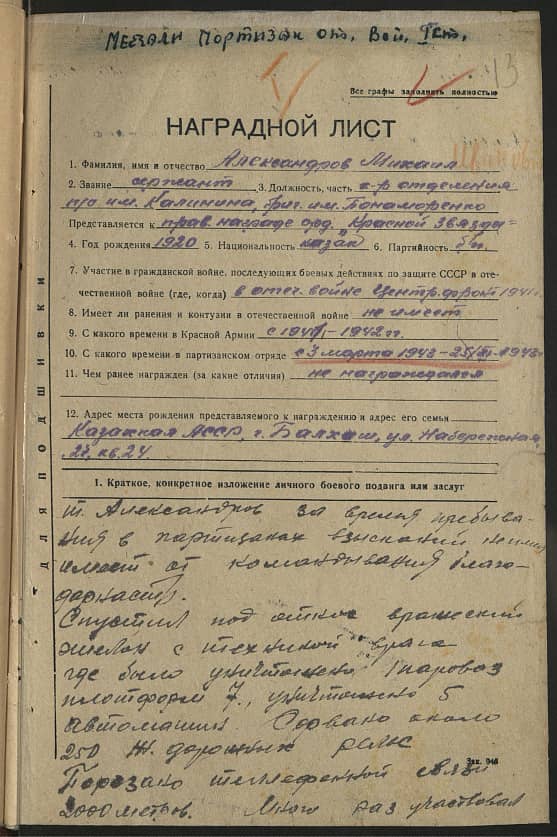 Медали Партизан от. Вой. I ст.
13
Все графы заполнить полностью
НАГРАДНОЙ ЛИСТ
1. Фамилия, имя и отчество Александров Михаил
2. Звание сержант 3. Должность, часть к-р отделения
п/о им. Калинина, бриг. им. Пономаренко
Представляется к прав. награде орд. "Красной Звезда"
4. Год рождения 1920 5. Национальность казак 6. Партийность б/п
7. Участие в гражданской войне, последующих боевых действиях по защите СССР в оте-
чественной войне (где, когда) в отеч. войне Центр. фронт 1941 г.
8. Имеет ли ранения и контузии в отечественной войне не имеет
9. С какого времени в Красной Армии с 1941-1942 гг.
10. С какого времени в партизанском отряде с 3 марта 1943-25/XI-1943
11. Чем ранее награжден (за какие отличия) не награждался
12. Адрес места рождения представляемого к награждению и адрес его семьи
Казахкая АССР, г. Балхаш, ул. Набережная,
27, кв. 24
ДЛЯ ПОДШИВКИ
1. Краткое, конкретное изложение личного боевого подвига или заслуг
т. Александров за время пребыва-
ния в партизанах взысканий не имел
имеет от командывания благо-
дарность.
Спустил под откос вражеский
эшелон с техникой врага
где было уничтожено 1 паровоз
платформ 7., уничтожено 5
автомашин. Сорвано около
250 ж. дорожных рельс
Зак. 946
Порезано телефонной связи
2000 метров. Много раз участвовал